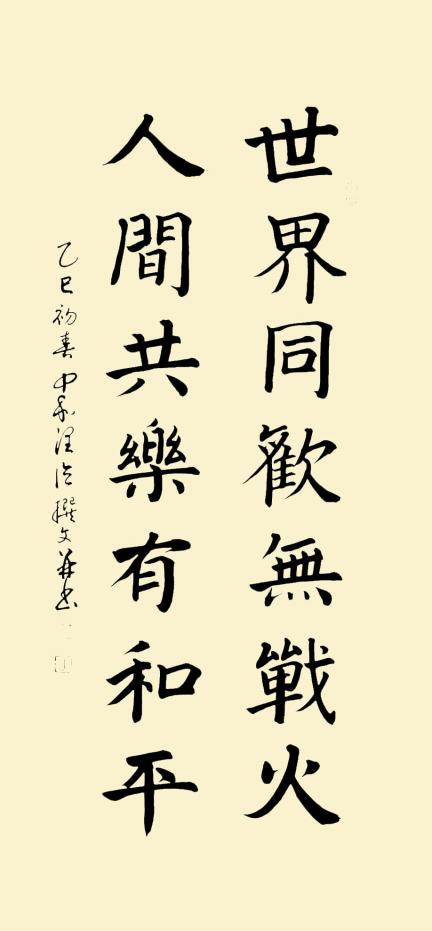 世界同歡無戰火
人間共樂有和平
乙巳初春 撰文並書